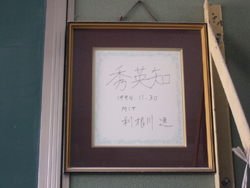 秀英知
1994 11.30
MIT
利根川 進